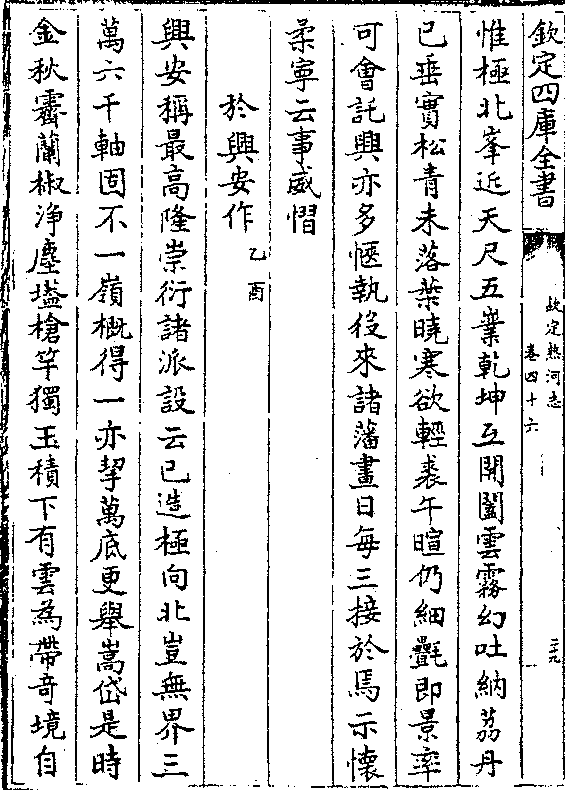 欽定四庫全書
欽定熱河志
卷四十六
二九
惟極北峯近天尺五業乾坤互開闔雲霧幻吐納荔丹
已垂實松青未落葉曉寒欲輕裘午暄仍細㲲即景率
可會託興亦多愜執役來諸藩晝日每三接於焉示懷
柔寧云事威慴
於興安作乙酉
興安稱最高隆崇衍諸派設云已造極向北豈無界三
萬六千軸固不一嶺概得一亦挈萬底更舉嵩岱是時
金秋霽蘭椒浄塵壒槍竿獨玉積下有雲為帶竒境自